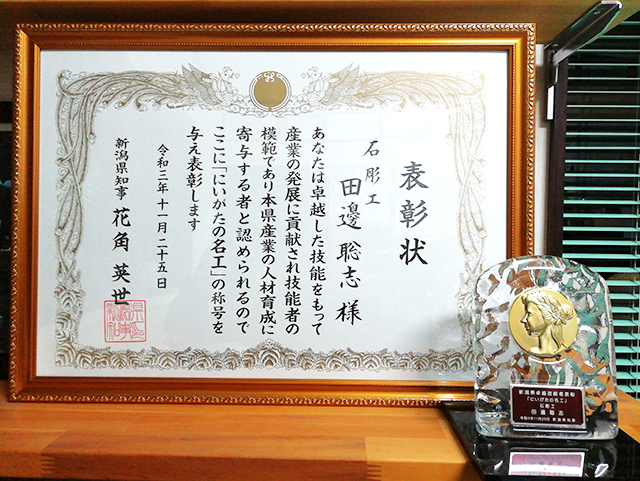 表彰状
石彫工
田邊聡志様
あなたは卓越した技能をもって
産業の発展に貢献され技能者の
模範であり本県産業の人材育成に
寄与する者と認められるので
ここに「にいがたの名工」の称号を
与え表彰します
令和三年十一月二十五日
新潟県知事 花角英世
新潟県卓越技能者表彰
「にいがたの名工」
石彫工
田邊聡志
令和3年11月25日 新潟県知事